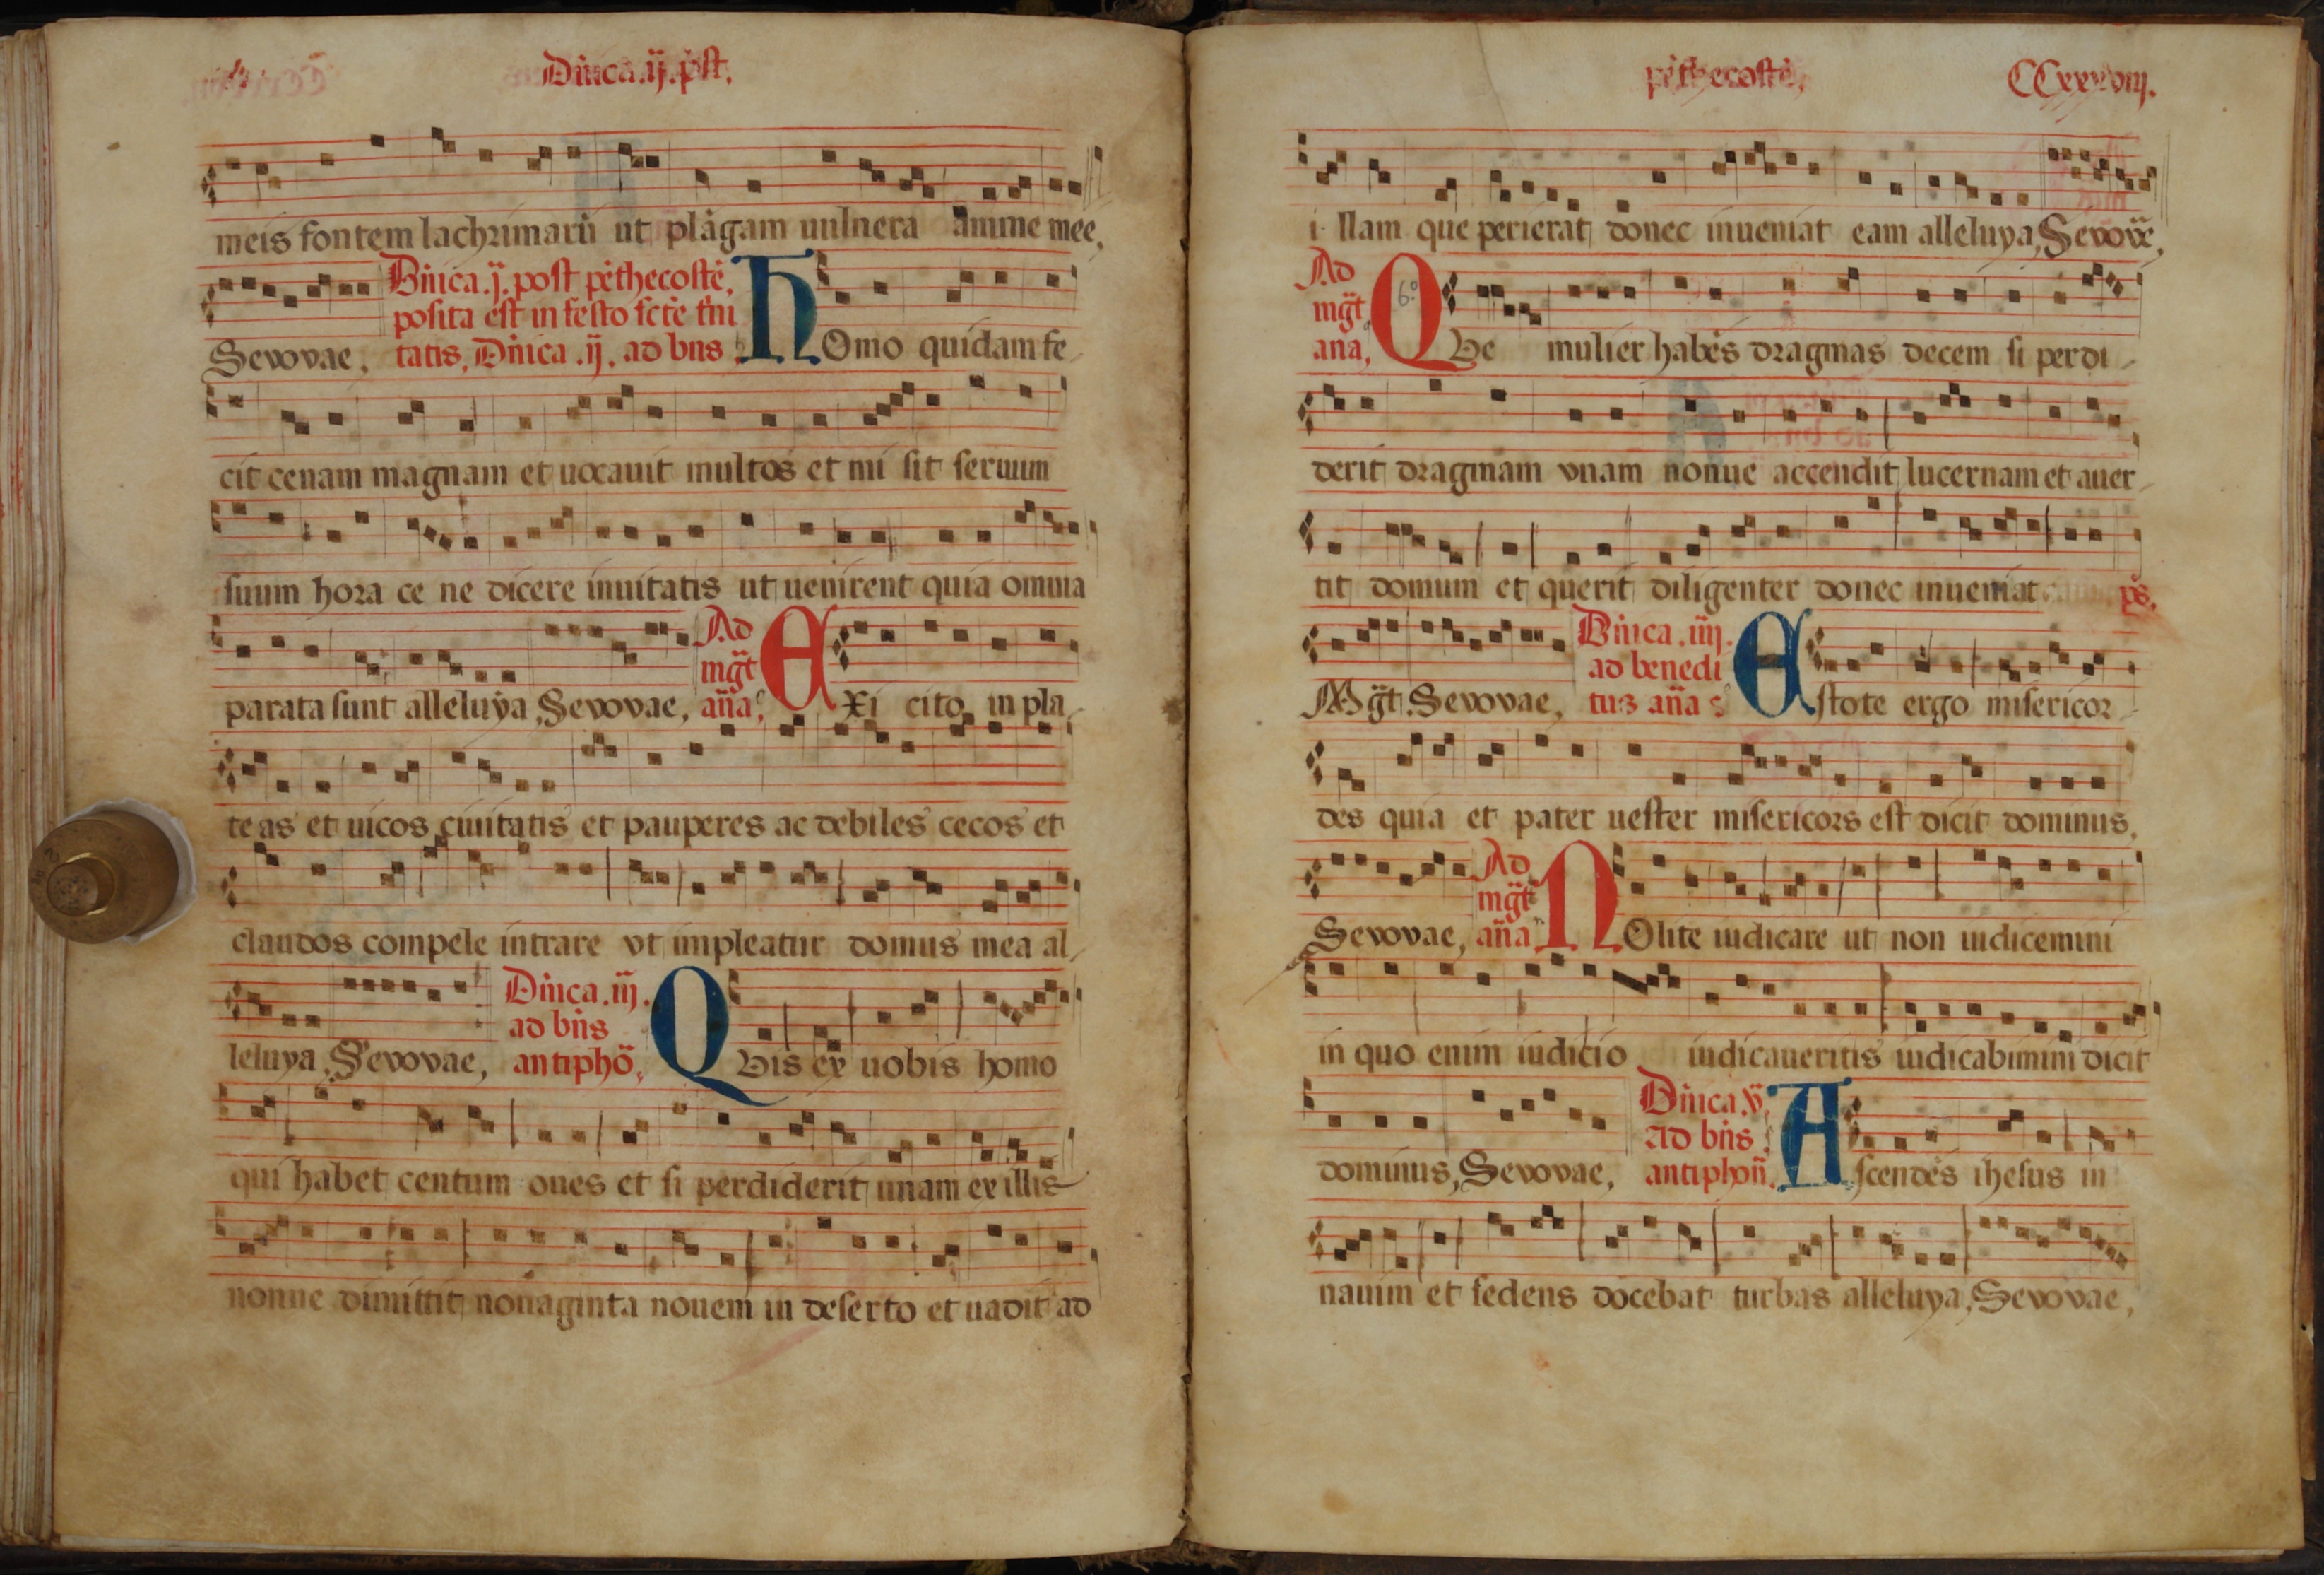 Dnica.ij.pst.
meis fontem lachrimarū ut plāgam uulnera anime mee,
Dnica.j. post pēthecostē,
posita est in festo scte tni
Sevovae, tatis, Dnica.ij. ad bns HOmo quidam fe
cit cenam magnam et uocauit multos et mi sit seruum
suum hora ce ne dicere inuitatis ut uenirent quia omnia
Ad
mgt
parata sunt alleluya, Sevovae, aña, EXi cito in pla
teas et uicos ciuitatis et pauperes ac debiles cecos et
claudos compele intrare vt impleatur domus mea al
Dnica.iij.
ad bns
leluya, Sevovae, antiphō, QVis ex uobis homo
qui habet centum oues et si perdiderit unam ex illis
nonne dimittit nonaginta nouem in deserto et uadit ad
pēthecostē, CCxxxviij.
i llam que perierat donec inueniat eam alleluya, Sevovae,
Ad
mgt
ana, QVe mulier habēs dragmas decem si perdi
6º
derit dragmam vnam nonne accendit lucernam et auer
tit domum et querit diligenter donec inueniat ps,
Dnica.iiij.
ad benedi
Mgt. Sevovae, tus aña EStote ergo misericor
des quia et pater uester misericors est dicit dominus,
Ad
mgt
Sevovae, aña NOlite iudicare ut non iudicemini
in quo enim iudicio iudicaueritis iudicabimini dicit
Dnica.v,
ad bns
dominus, Sevovae, antiphoñ, AScendēs ihesus in
nauim et sedens docebat turbas alleluya, Sevovae,